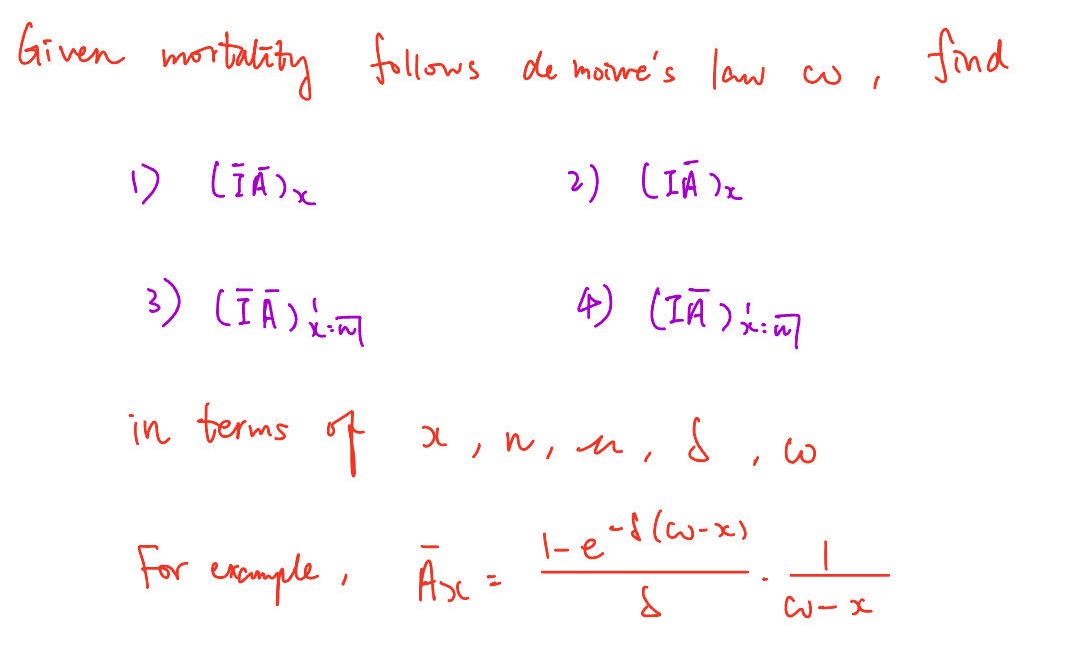 Given mortality follows de moivre's law ω, find
1) (ĪĀ)ₓ 2) (IĀ)ₓ
3) (ĪĀ)¹ₓ:n̅| 4) (IĀ)¹ₓ:n̅|
in terms of x, n, μ, δ, ω
For example, Āₓ = (1-e^(-δ(ω-x)))/δ · 1/(ω-x)